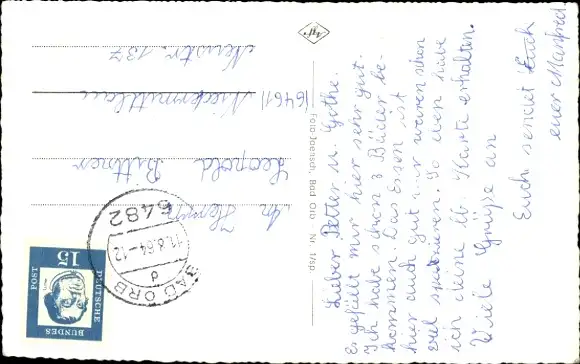 Lieber Vetter u. Gothe.
Es gefällt mir hier sehr gut.
Ich habe schon 3 Bäder be-
kommen. Das Essen ist
hier auch gut. wir waren schon
viel spazieren. So eben habe
ich deine lb. Karte erhalten.
Viele Grüße an
Euch sendet Euch
euer Manfred
Agfa
Foto-Joensch, Bad Orb Nr.
An Herrn
Leopold
Bittner
(6461) Niedermittlau
Neustr. 137
6482
11.8.64-12
d
BAD ORB
15
DEUTSCHE
BUNDES
POST